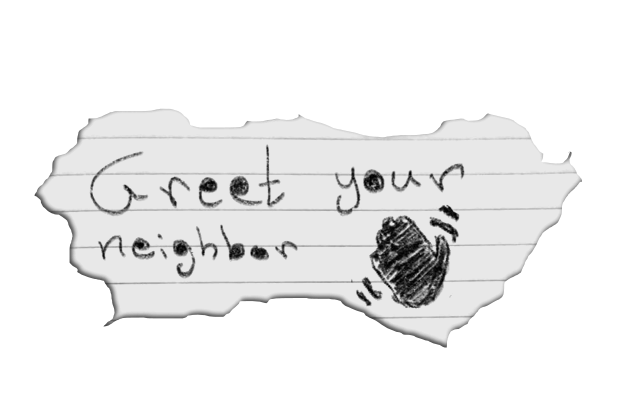 Greet your
neighbor